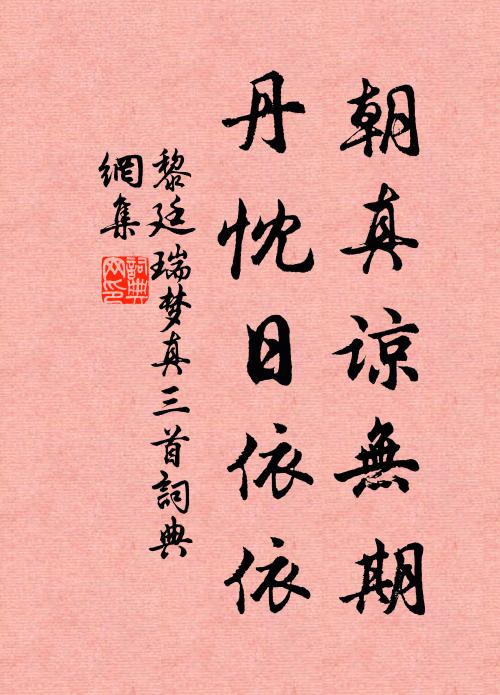 朝真谅無期
丹忱日依依
黎廷瑞梦真三首詞典
網集
詞典
网印